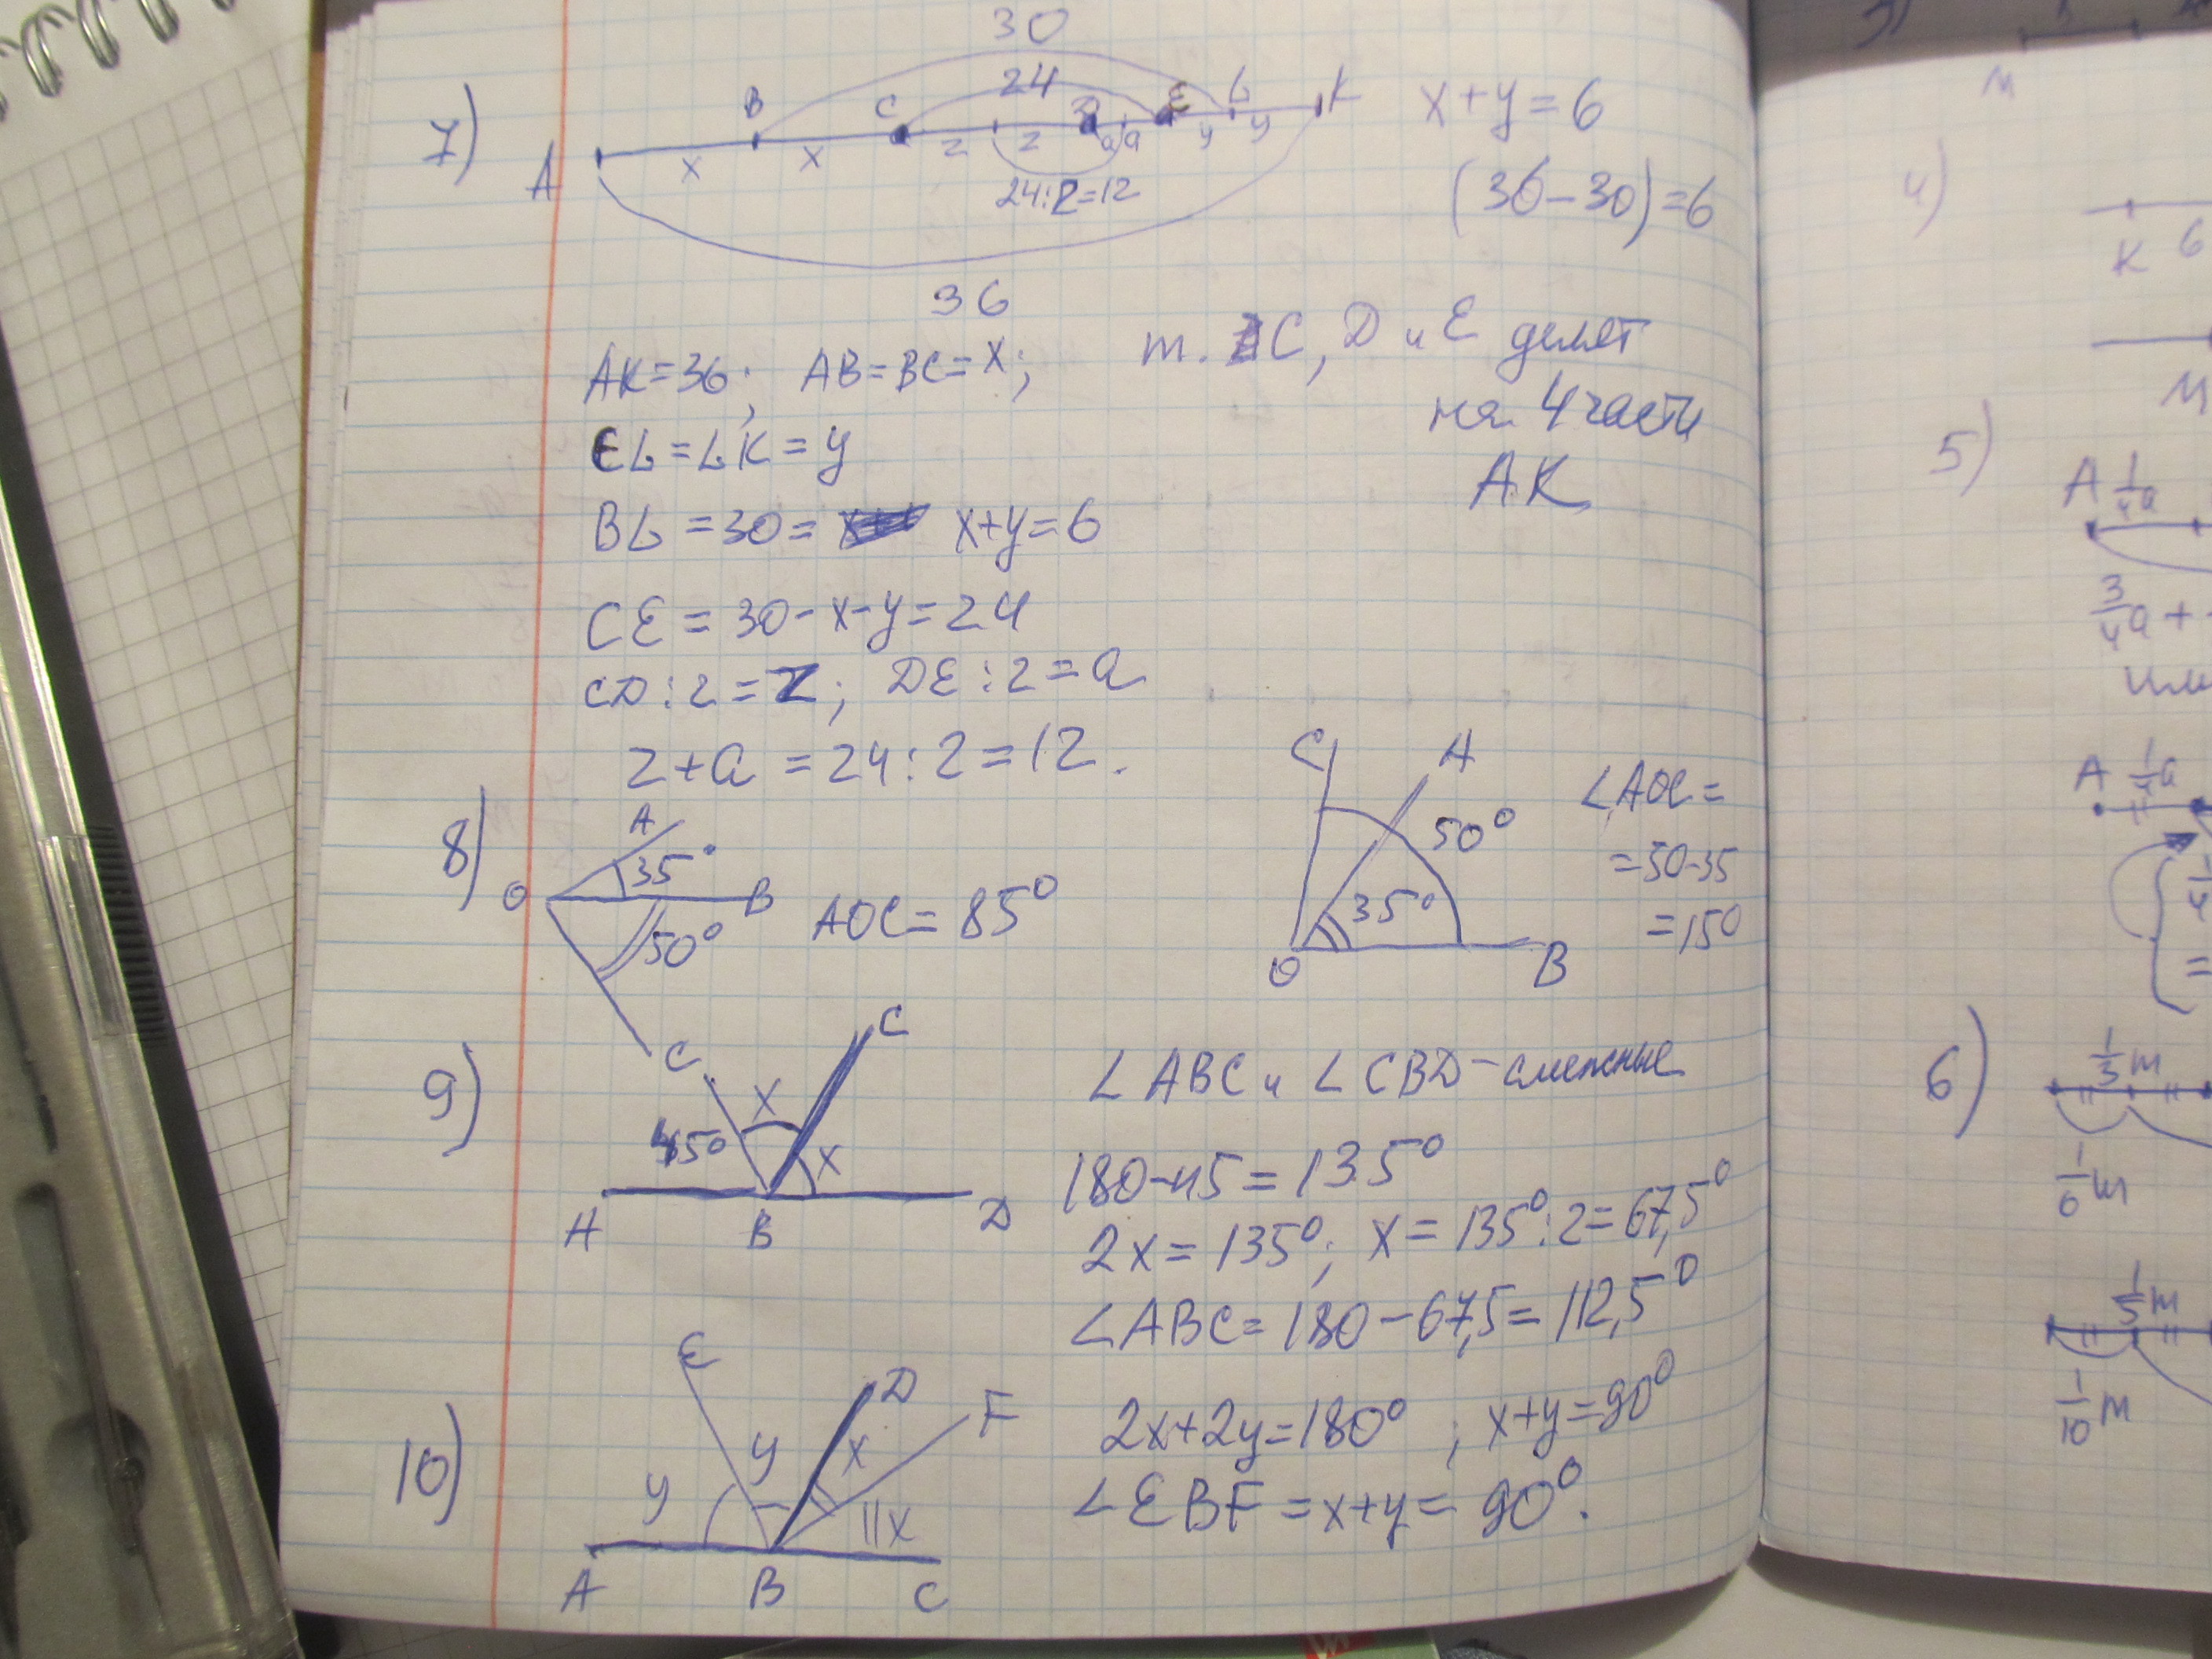 7)
30
24
A B C D E L K
x x z z a a y y
24:2=12
36
x+y=6
(36-30)=6
AK=36; AB=BC=x;
EL=LK=y
BL=30= x+y=6
CE=30-x-y=24
CD:2=z; DE:2=a
z+a=24:2=12.
т. C, D и E делят
на 4 части
AK
8)
A
35°
O B
50°
C
AOC=85°
C A
50°
35°
O B
∠AOC=
=50-35
=15°
9)
C
x
45° x
A B D
∠ABC и ∠CBD-смежные
180-45=135°
2x=135°; x=135°:2=67,5°
∠ABC=180-67,5=112,5°
10)
E D F
y y x
x
A B C
2x+2y=180°; x+y=90°
∠EBF=x+y=90°.
3)
M
4)
K 6
M
5)
A 1/4a
3/4a+
A 1/4a
1/4
=
6)
1/3m
1/6m
1/5m
1/10m